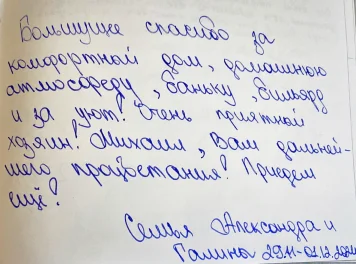 Большущее спасибо за
комфортной дом, домашнюю
атмосферу, баньку, бильярд
и за уют! Очень приятной
хозяин! Михаил, Вам дальней-
шего процветания! Приедем
ещё!
Семья Александра и
Галины 29.11-02.12.2021